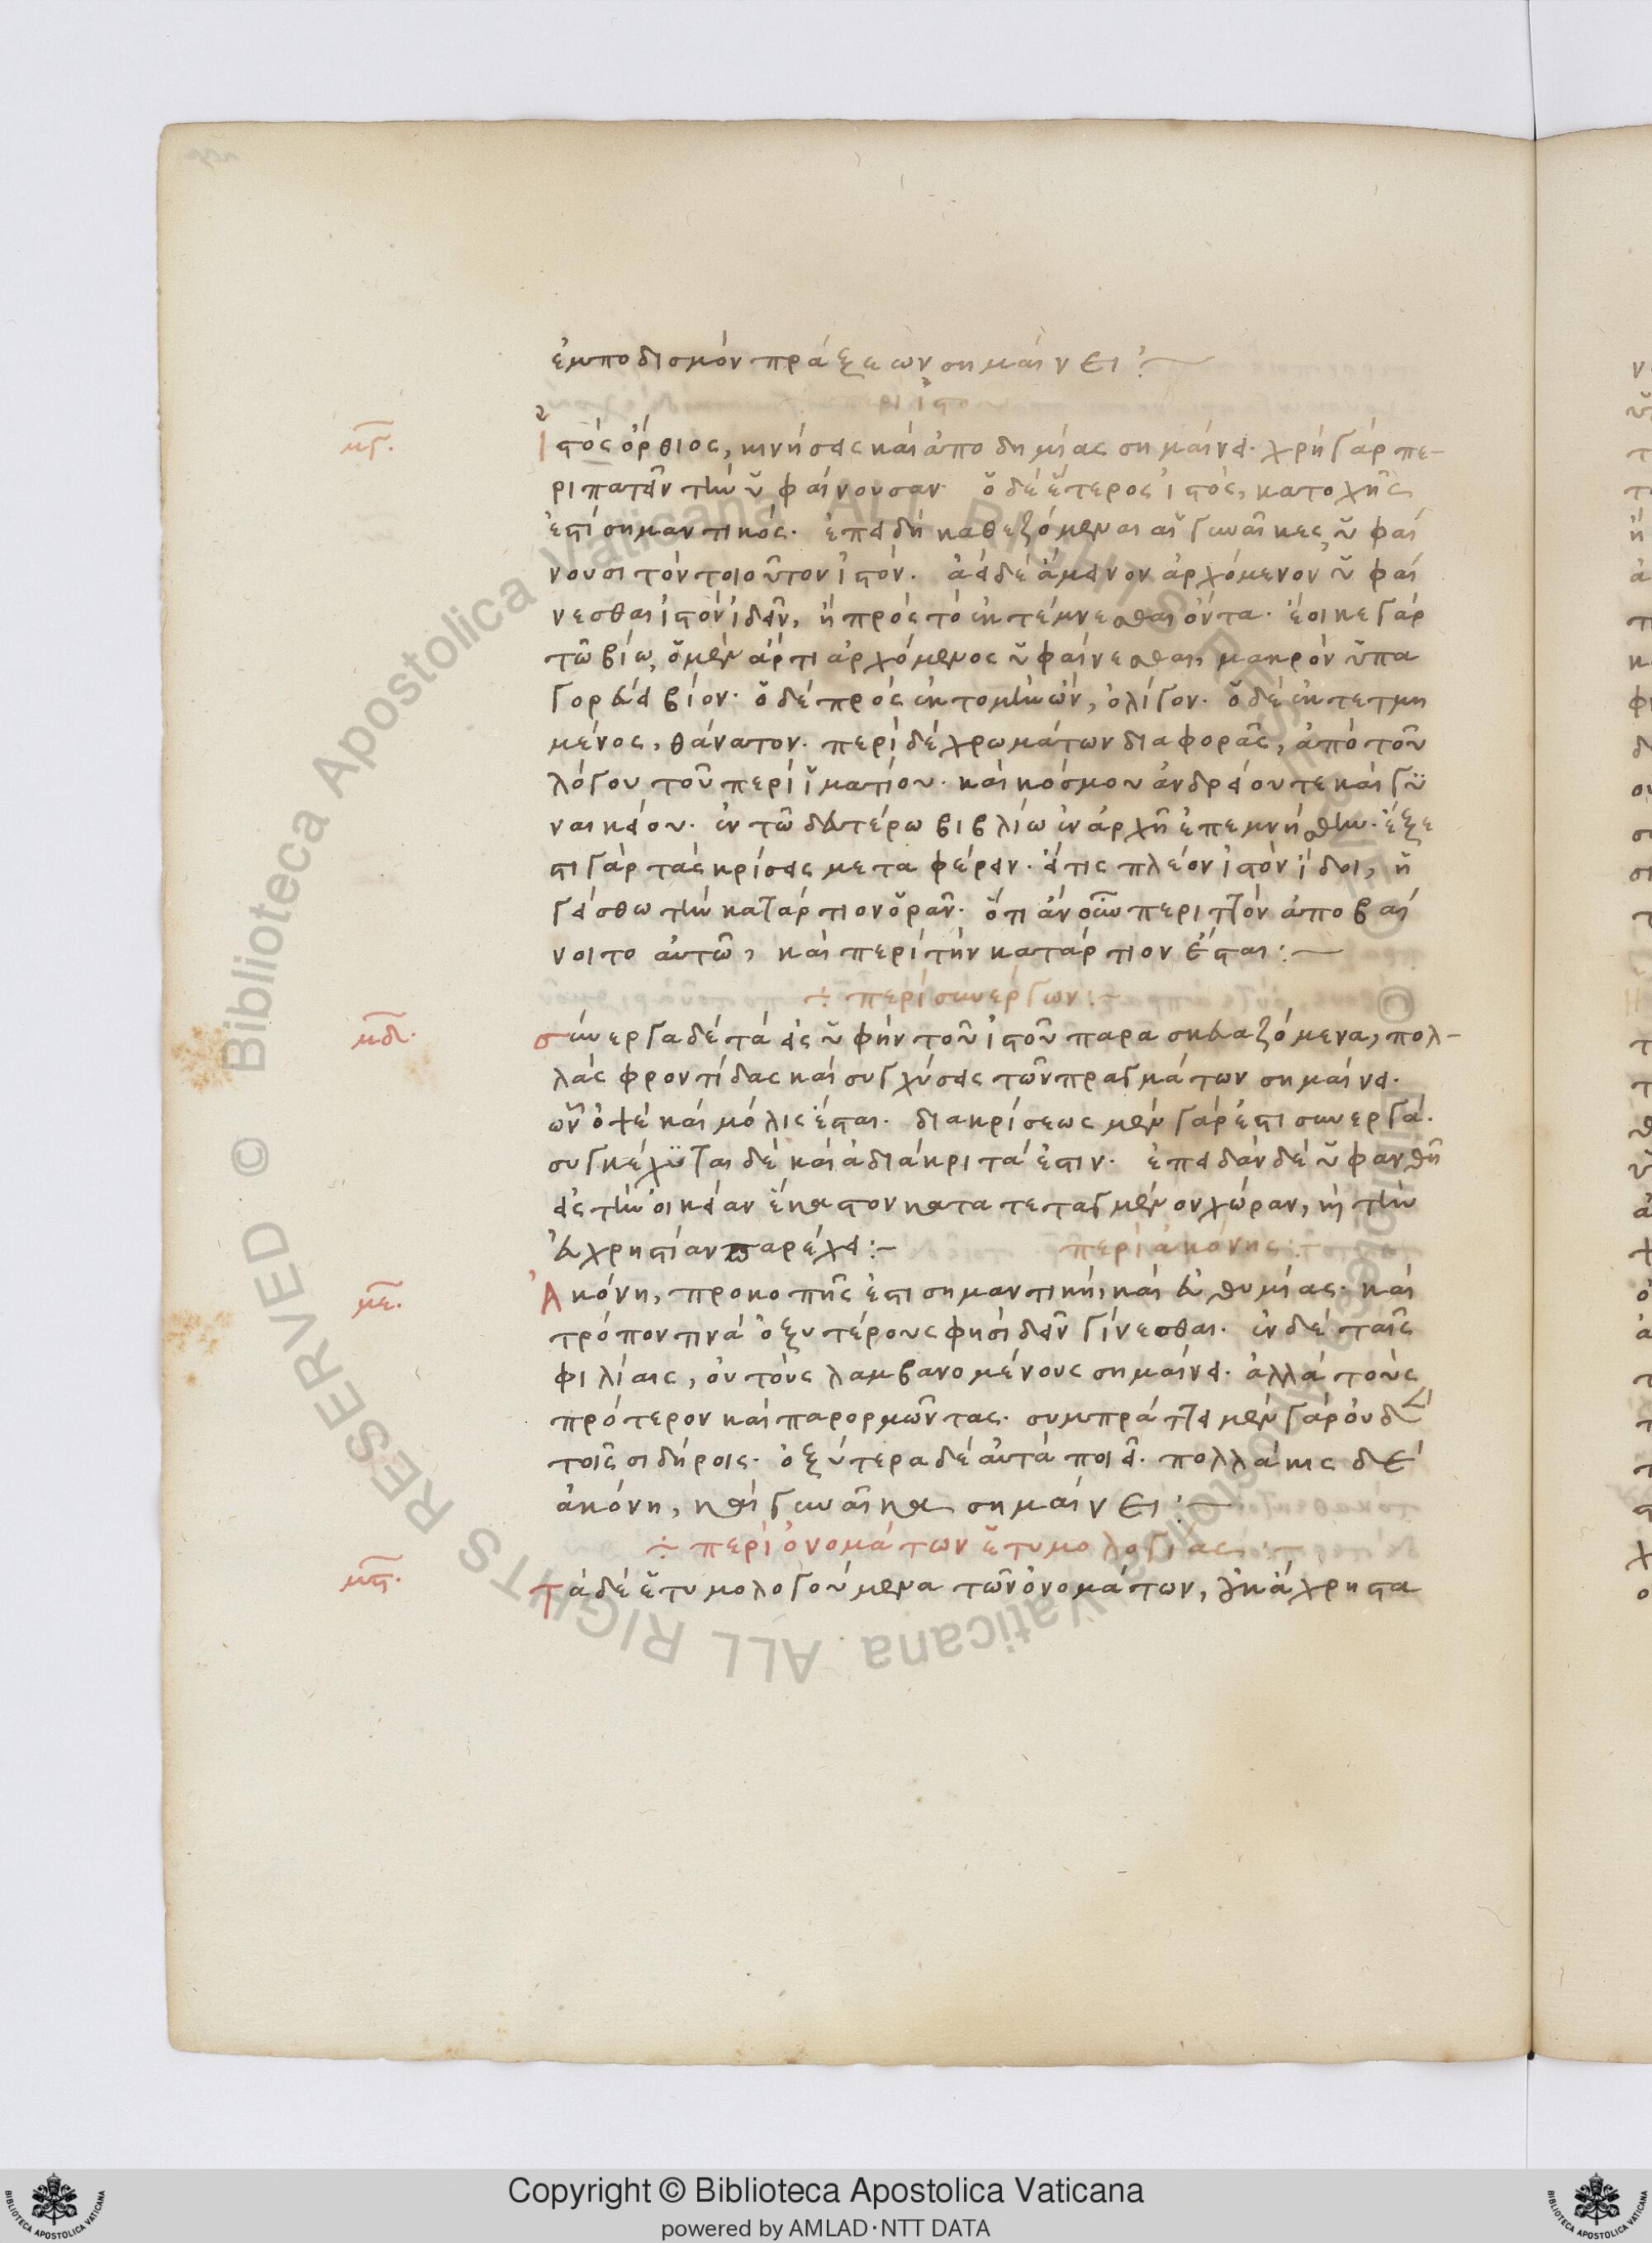 ἐμποδισμὸν πράξεων σημαίνει:
περὶ ἱστοῦ
μγ. Ἱστὸς ὄρθιος, κινήσεις καὶ ἀποδημίας σημαίνει. χρὴ γὰρ πε-
ριπατεῖν τὴν ὑφαίνουσαν. ὁ δὲ ἕτερος ἱστὸς, κατοχῆς
ἐστὶ σημαντικός. ἐπειδὴ καθεζόμεναι αἱ γυναῖκες ὑφαί
νουσι τὸν τοιοῦτον ἱστόν. ἀεὶ δὲ ἄμεινον ἀρχόμενον ὑφαί
νεσθαι ἱστὸν ἰδεῖν, ἢ πρὸς τὸ ἐκτέμνεσθαι ὄντα. ἔοικε γὰρ
τῶ βίω, ὁ μὲν ἄρτι ἀρχόμενος ὑφαίνεσθαι, μακρὸν ὑπα
γορεύει βίον. ὁ δὲ πρὸς ἐκτομὴν ὢν, ὀλίγον. ὁ δὲ ἐκτετμη
μένος, θάνατον. περὶ δὲ χρωμάτων διαφορᾶς, ἀπὸ τοῦ
λόγου τοῦ περὶ ἱματίου. καὶ κόσμου ἀνδρείου τε καὶ γυ
ναικείου. ἐν τῶ δευτέρω βιβλίω ἐν ἀρχῆ ἐπεμνήσθην. ἔξε
στι γὰρ τὰς κρίσεις μεταφέρειν. εἴ τις πλέον ἱστὸν ἴδοι, ἡ
γείσθω τὴν κατάρτιον ὁρᾶν. ὅτι ἂν οὖν περὶ τὸν ἀποβαί
νοιτο αὐτῶ, καὶ περὶ τὴν κατάρτιον ἔσται:
÷ περὶ συνέργων:
μδ. σύνεργα δὲ τὰ εἰς ὑφὴν τοῦ ἱστοῦ παρασκευαζόμενα, πολ-
λὰς φροντίδας καὶ συγχύσεις τῶν πραγμάτων σημαίνει.
ὧν ὀψὲ καὶ μόλις ἔσται. διακρίσεως μὲν γὰρ ἐστὶ συνεργά.
συγκέχυται δὲ καὶ ἀδιάκριτά ἐστιν. ἐπειδὰν δὲ ὑφανθῆ
εἰς τὴν οἰκείαν ἕκαστον κατατεταγμένον χώραν, καὶ τὴν
εὐχρηστίαν παρέχει:- περὶ ἀκόνης:
με. Ἀκόνη, προκοπῆς ἐστι σημαντικὴ, καὶ εὐθυμίας. καὶ
τρόπον τινὰ ὀξυτέρους φησὶ δεῖν γίνεσθαι. ἐν δὲ ταῖς
φιλίαις, οὐ τοὺς λαμβανομένους σημαίνει. ἀλλὰ τοὺς
πρότερον καὶ παρορμῶντας. συμπράττει μὲν γὰρ οὐδὲν
τοῖς σιδήροις. ὀξύτερα δὲ αὐτὰ ποιεῖ. πολλάκις δὲ
ἀκόνη, καὶ γυναῖκα σημαίνει:
÷ περὶ ὀνομάτων ἐτυμολογίας:
μς. τὰ δὲ ἐτυμολογούμενα τῶν ὀνομάτων, οὐκ ἄχρηστα
Copyright © Biblioteca Apostolica Vaticana
powered by AMLAD·NTT DATA